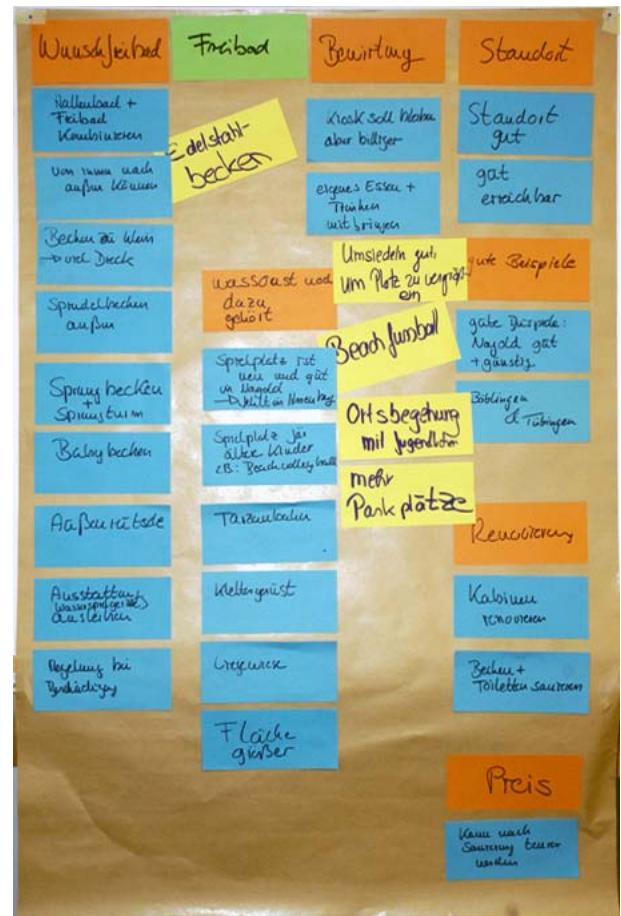 Wunschfreibad
Hallenbad +
Freibad
Kombinieren
Von innen nach
außen können
Becken zu klein
→ viel Dreck
Sprudelbecken
außen
Sprungbecken
+
Sprungturm
Babybecken
Außenrutsche
Ausstattung
ausleihen
Regelung bei
Freibad
Edelstahl-
becken
was sonst noch
dazu
gehört
Spielplatz ist
neu und gut
in Nagold
Spielplatz für
ältere Kinder
z.B.: Beachvolleyball
Tarzanbahn
Klettergerüst
Liegewiese
Fläche
größer
Bewirtung
Kiosk soll bleiben
aber billiger
eigenes Essen +
Trinken
mitbringen
Umsiedeln gut,
um Platz zu vergröß-
ern
Beachfussball
Ortsbegehung
mit Jugendlichen
mehr
Parkplätze
Standort
Standort
gut
gut
erreichbar
gute Beispiele
gute Beispiele:
Nagold gut
+ günstig
Böblingen
Tübingen
Renovierung
Kabinen
renovieren
Becken +
Toiletten sanieren
Preis
Kann nach
Sanierung teurer
werden